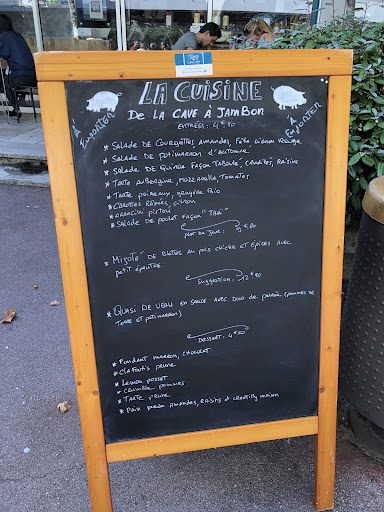 LA CUISINE
DE LA CAVE À JAMBON
À EMPORTER
À EMPORTER
ENTRÉES : 4€90
* SALADE DE COURGETTES AMANDES, FETA OIGNON ROUGE
* SALADE DE POTIMARRON D'AUTOMNE
* SALADE DE QUINOA FAÇON TABOULÉ, CRUDITÉS, RAISINS
* TARTE AUBERGINE, MOZZARELLA, TOMATES
* TARTE POIREAUX, GRUYÈRE BIO
* CAROTTES RÂPÉES, CITRON
* ARANCINI PISTOU
* SALADE DE POULET FAÇON "THAÏ"
PLAT DU JOUR : €80
* MIJOTÉ DE BLETTES AU POIS CHICHE ET ÉPICES AVEC
PETIT ÉPEAUTRE
SUGGESTION : 12€80
* QUASI DE VEAU EN SAUCE AVEC DUO DE PURÉE (POMMES DE
TERRE ET POTIMARRON)
DESSERT : 4€50
* FONDANT MARRON, CHOCOLAT
* CLAFOUTIS PRUNE
* LEMON POSSET
* CRUMBLE POMMES
* TARTE PRUNE
* PAIN PERDU AMANDES, RAISINS ET CHANTILLY MAISON